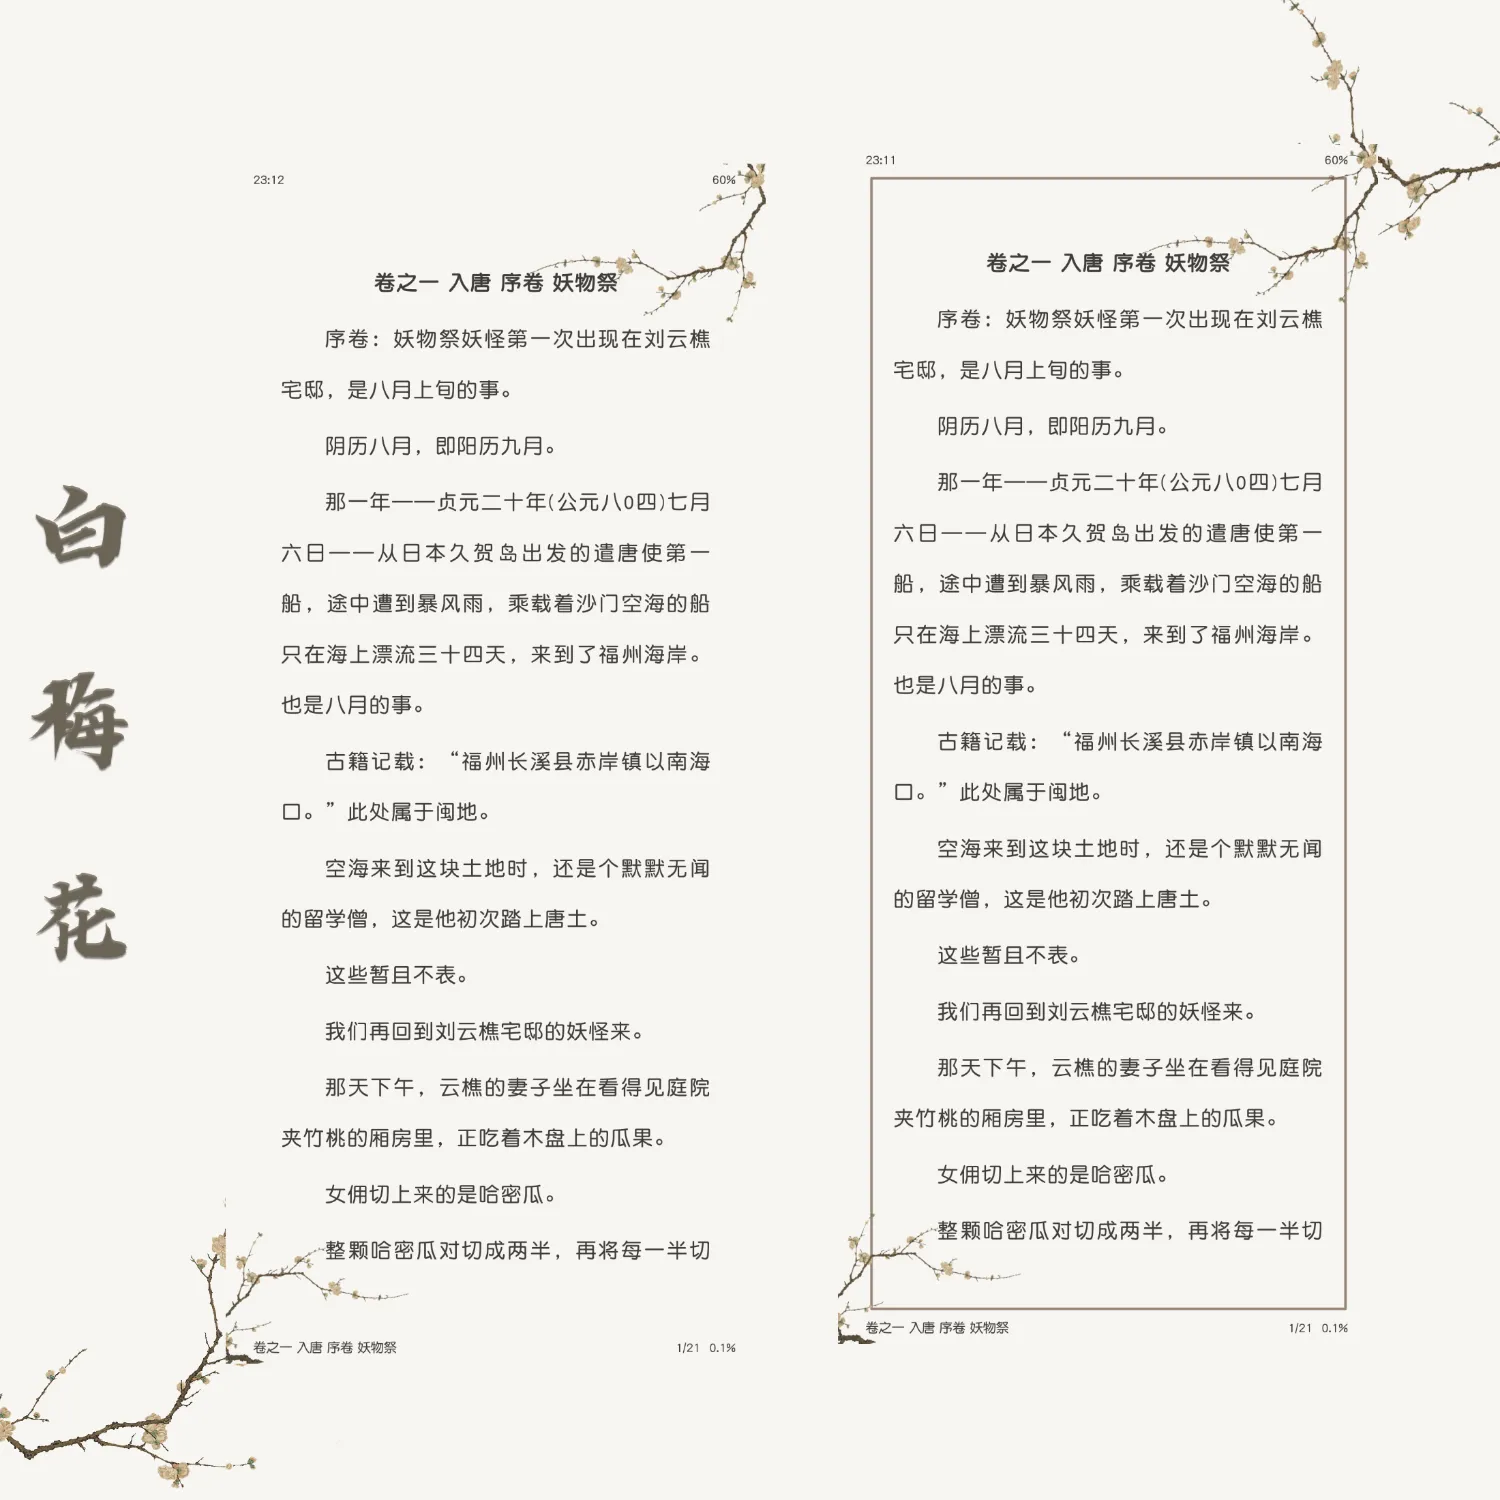 白
梅
花
23:12
60%
卷之一 入唐 序卷 妖物祭
序卷：妖物祭妖怪第一次出现在刘云樵
宅邸，是八月上旬的事。
阴历八月，即阳历九月。
那一年——贞元二十年(公元八0四)七月
六日——从日本久贺岛出发的遣唐使第一
船，途中遭到暴风雨，乘载着沙门空海的船
只在海上漂流三十四天，来到了福州海岸。
也是八月的事。
古籍记载：“福州长溪县赤岸镇以南海
口。”此处属于闽地。
空海来到这块土地时，还是个默默无闻
的留学僧，这是他初次踏上唐土。
这些暂且不表。
我们再回到刘云樵宅邸的妖怪来。
那天下午，云樵的妻子坐在看得见庭院
夹竹桃的厢房里，正吃着木盘上的瓜果。
女佣切上来的是哈密瓜。
整颗哈密瓜对切成两半，再将每一半切
卷之一 入唐 序卷 妖物祭
1/21 0.1%
23:11
60%
卷之一 入唐 序卷 妖物祭
序卷：妖物祭妖怪第一次出现在刘云樵
宅邸，是八月上旬的事。
阴历八月，即阳历九月。
那一年——贞元二十年(公元八0四)七月
六日——从日本久贺岛出发的遣唐使第一
船，途中遭到暴风雨，乘载着沙门空海的船
只在海上漂流三十四天，来到了福州海岸。
也是八月的事。
古籍记载：“福州长溪县赤岸镇以南海
口。”此处属于闽地。
空海来到这块土地时，还是个默默无闻
的留学僧，这是他初次踏上唐土。
这些暂且不表。
我们再回到刘云樵宅邸的妖怪来。
那天下午，云樵的妻子坐在看得见庭院
夹竹桃的厢房里，正吃着木盘上的瓜果。
女佣切上来的是哈密瓜。
整颗哈密瓜对切成两半，再将每一半切
卷之一 入唐 序卷 妖物祭
1/21 0.1%